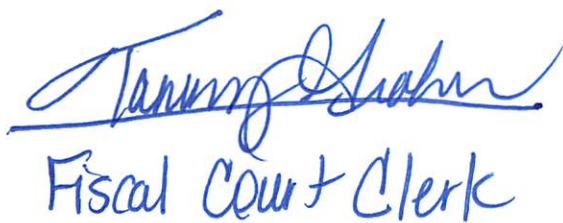 Tammy Graham
Fiscal Court Clerk